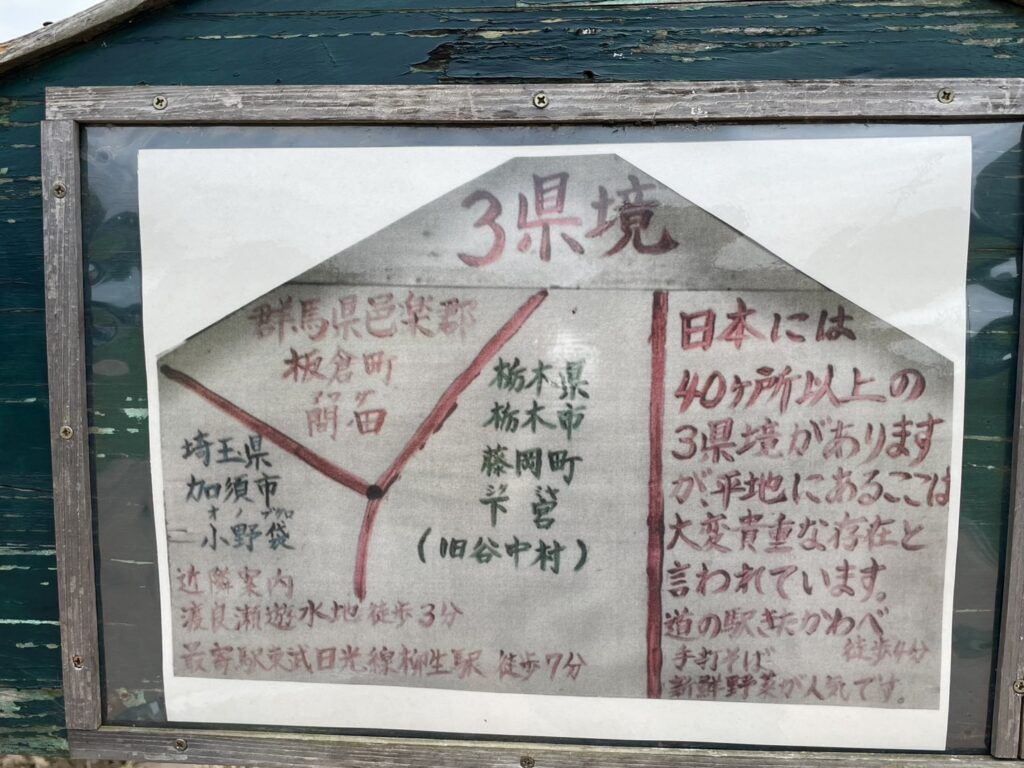 3県境
群馬県邑楽郡
板倉町
海老瀬
栃木県
栃木市
藤岡町
下宮
(旧谷中村)
埼玉県
加須市
小野袋
近隣案内
渡良瀬遊水地 徒歩3分
最寄駅東武日光線柳生駅 徒歩7分
日本には
40ヶ所以上の
3県境があります
が、平地にあるここは
大変貴重な存在と
言われています。
道の駅きたかわべ
徒歩4分
手打そば
新鮮野菜が人気です。